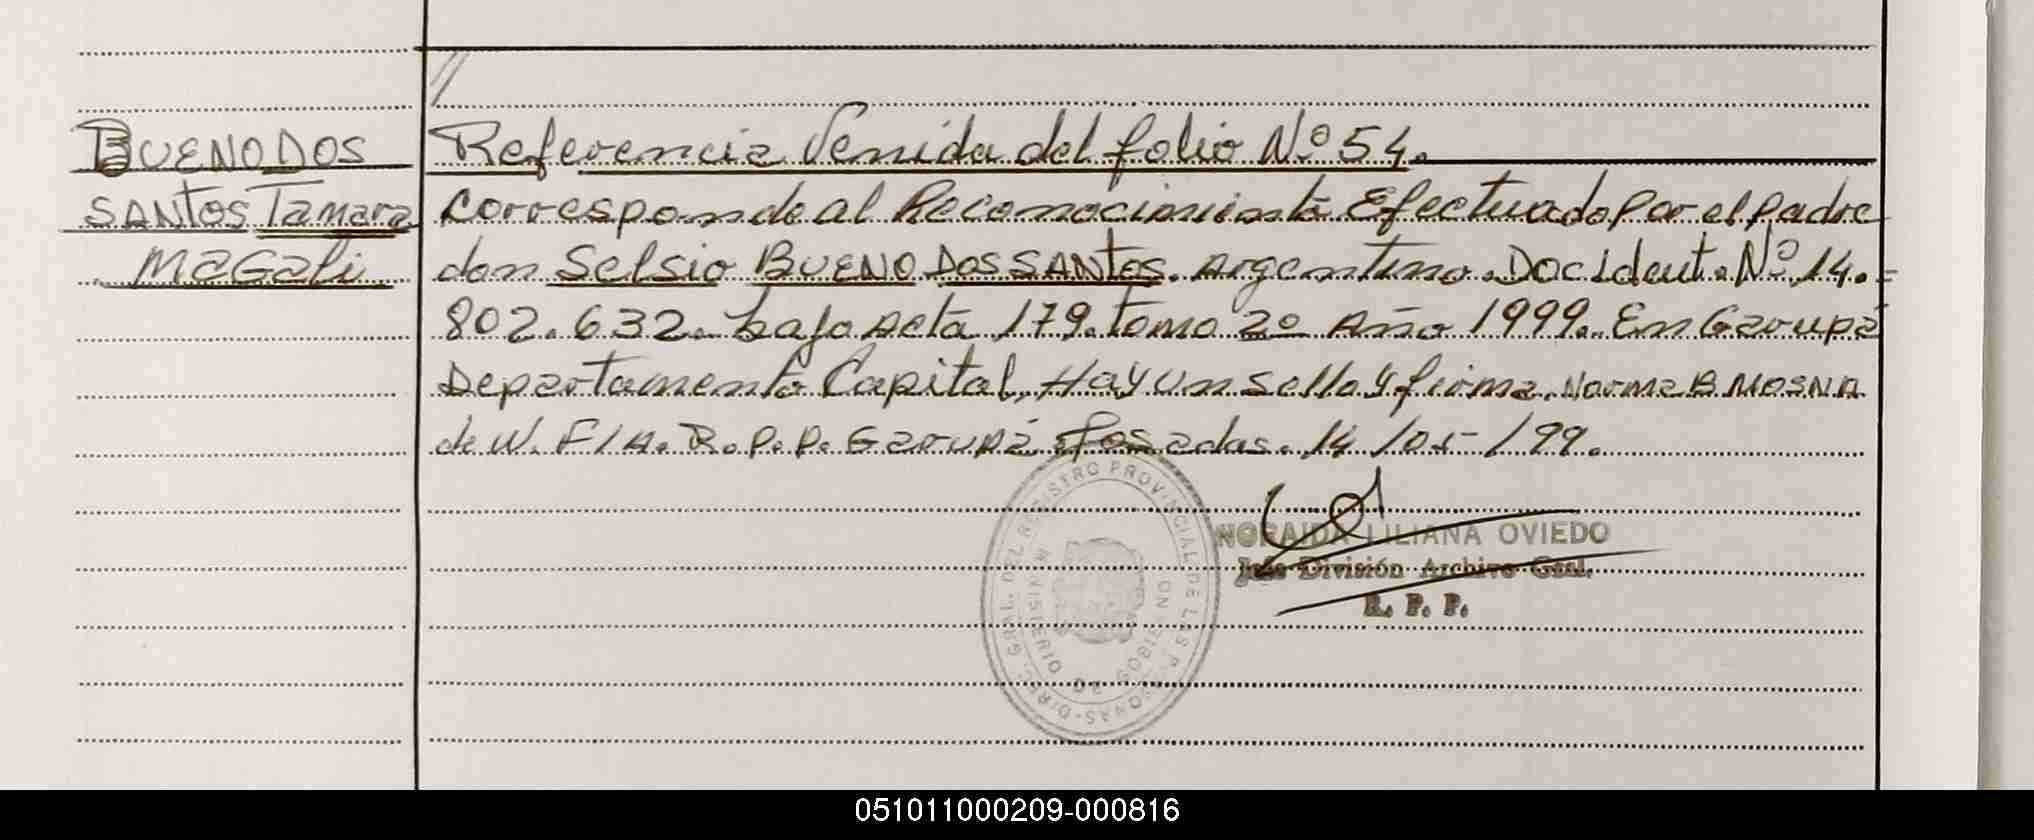 BUENO DOS
SANTOS Tamara
MaGali
Referencia Venida del folio Nº 54.
Corresponde al Reconocimiento Efectuado por el padre
don Selsio BUENO DOS SANTOS. Argentino. Doc ident. Nº 14.=
802.632. bajo Acta 179. tomo 2º Año 1999. En Garupá
Departamento Capital, Hay un sello y firma. Norma B. MOSNA
de W. F/A. R.P.P. Garupá Posadas. 14/05/99.
NORAIDA LILIANA OVIEDO
Jefe División Archivo Gral.
R. P. P.
DIREC. GRAL. DEL REGISTRO PROVINCIAL DE LAS PERSONAS
MINISTERIO DE GOBIERNO
051011000209-000816